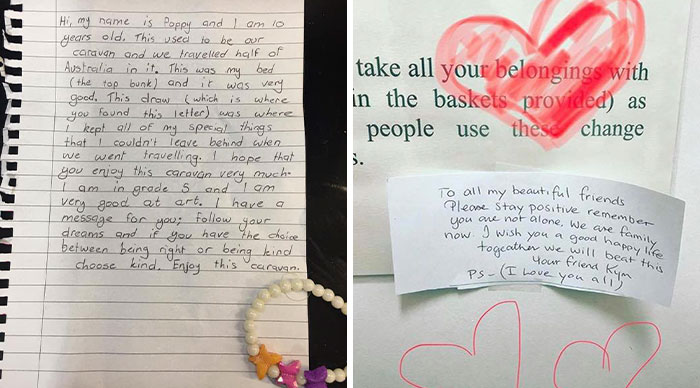 Hi, my name is Poppy and I am 10
years old. This used to be our
caravan and we travelled half of
Australia in it. This was my bed
(the top bunk) and it was very
good. This draw (which is where
you found this letter) was where
I kept all of my special things
that I couldn't leave behind when
we went travelling. I hope that
you enjoy this caravan very much.
I am in grade 5 and I am
very good at art. I have a
message for you; follow your
dreams and if you have the choice
between being right or being kind
choose kind. Enjoy this caravan.
take all your belongings with
in the baskets provided) as
people use these change
s.
To all my beautiful friends
Please stay positive remember
you are not alone. We are family
now. I wish you a good happy life
togeather we will beat this
Your friend Kym
PS - (I Love you all)